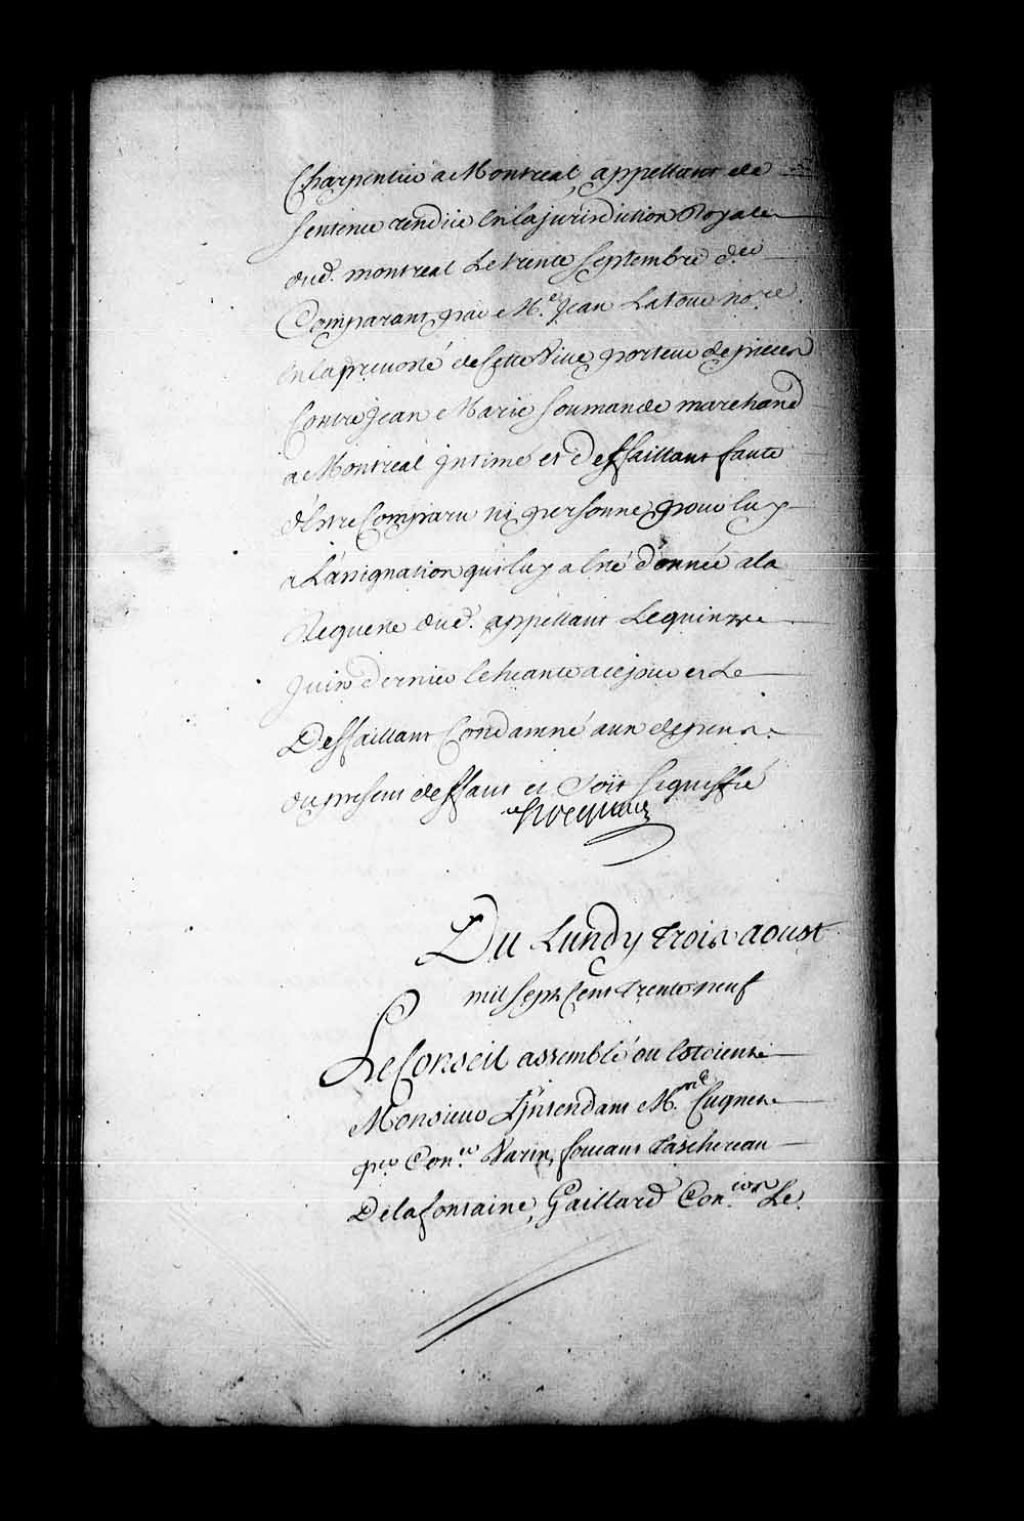 Charpentier a Montreal, appellant de
sentence rendüe en la jurisdiction Royale
dud. montreal Le trente septembre d.er
Comparant par M.e Jean Latour no.re
en la prevosté de Cette Ville porteur de pieces
Contre Jean Marie soumande marchand
a Montreal jntimé et Deffaillant faute
d'Estre Comparu ni personne pour luy
a L'assignation qui luy a Eté donnée a la
Requeste dud. appellant Le quinze
Juin dernier Echeante a ce jour et Le
Deffaillant Condamné aux depens
du present deffaut et soit signiffié
Hocquart
Du Lundy trois aoust
mil sept Cent trente neuf
Le Conseil assemblé ou Estoient
Monsieur L'jntendant M.re Cugnet
pr. Con.er Varin, foucaut taschereau
Delafontaine, Gaillard Con.ers Le